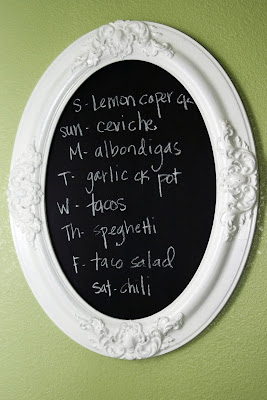 S- Lemon caper ck
sun- ceviche
M- albondigas
T- garlic ck pot
W- tacos
Th- speghetti
F- taco salad
sat- chili